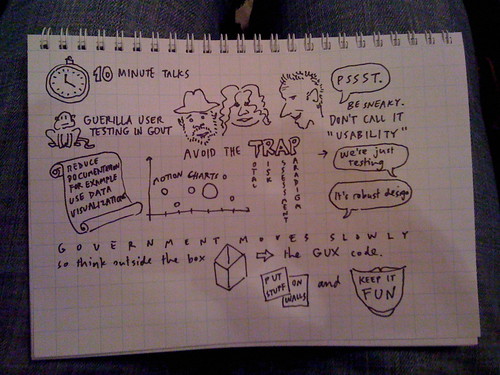 10 MINUTE TALKS
GUERILLA USER
TESTING IN GOVT
PSSST.
BE SNEAKY.
DON'T CALL IT
"USABILITY"
AVOID THE TRAP
TOTAL
RISK
ASSESSMENT
PARADIGM
we're just
testing
It's robust design
REDUCE
DOCUMENTATION
FOR EXAMPLE
USE DATA
VISUALIZATION
MOTION CHARTS
GOVERNMENT MOVES SLOWLY
so think outside the box
the GUX code.
PUT
STUFF
ON
WALLS
and
KEEP IT
FUN